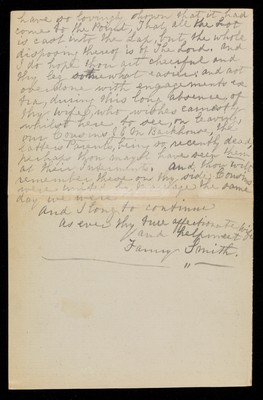 have so lovingly shown that it had
come to the Point, That, all the Lot
is cast into the Lap, but, the whole
disposing thereof is of The Lord. and
I do hope thou art cheerful and
thy leg somewhat easier and not
over done with engagements ex
tra, during this long absence of
thy Wife, who wishes earnestly
whilst here to see, on Exoungs,
our Cousins, J & M Backhouse, the
latters Parents, being so recently dead,
perhaps thou mayst have seen them
at their Interments. And, thou wilt
remember these on thy side, Cousins
were united in Marriage the same
day we were
And I long to continue
as ever thy true affectionate Wife
and helpmeet
Fanny Smith.